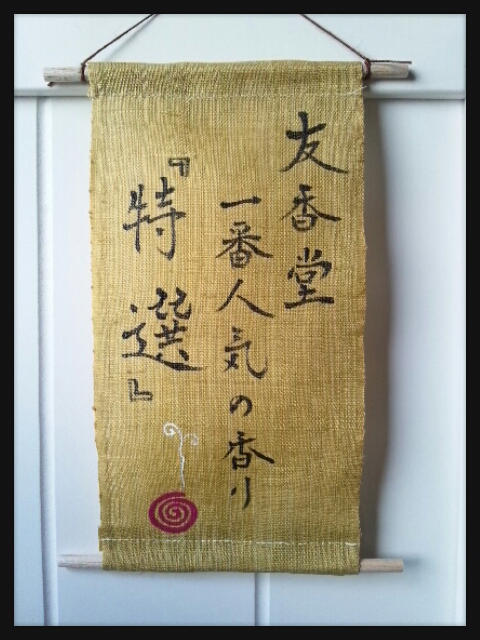 友香堂
一番人気の香り
『特選』